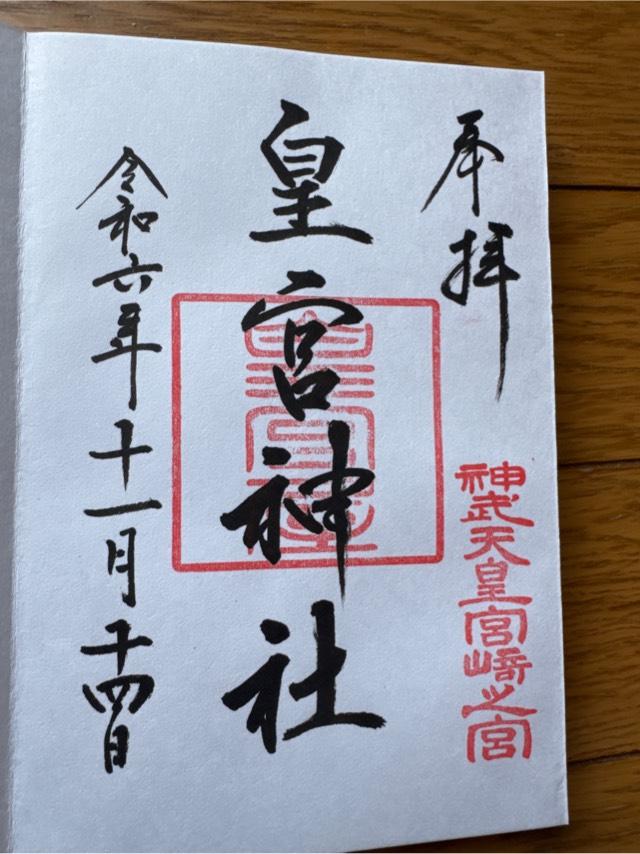 奉拝
神武天皇宮﨑之宮
皇宮神社
令和六年十一月十四日